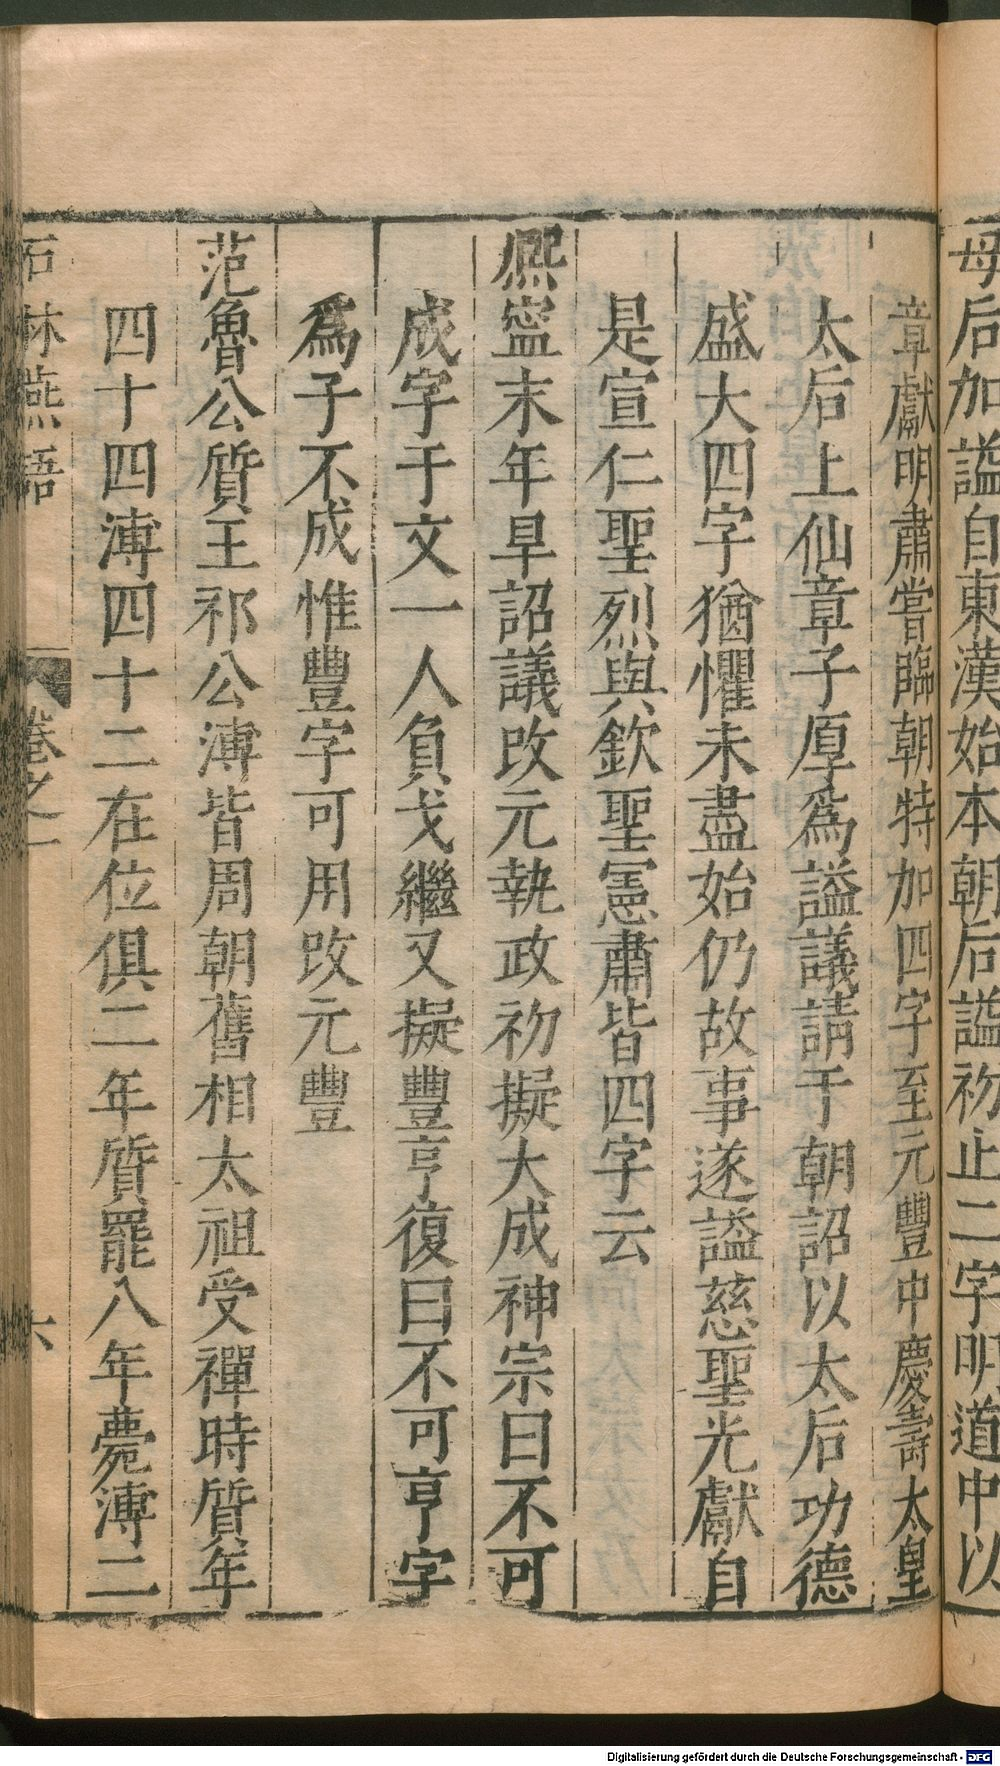 母后加謚自東漢始本朝后謚初止二字明道中以
章獻明肅嘗臨朝特加四字至元豐中慶壽太皇
太后上仙章子厚為謚議請于朝詔以太后功德
盛大四字猶懼未盡始仍故事遂謚慈聖光獻自
是宣仁聖烈與欽聖憲肅皆四字云
熈寍末年旱詔議改元執政初擬大成神宗曰不可
成字于文一人負戈繼又擬豐亨復曰不可亨字
為子不成惟豐字可用改元豐
范魯公質王祁公溥皆周朝舊相太祖受禪時質年
四十四溥四十二在位俱二年質罷八年薨溥二
石林燕語 卷之一 六
Digitalisierung gefördert durch die Deutsche Forschungsgemeinschaft - DFG